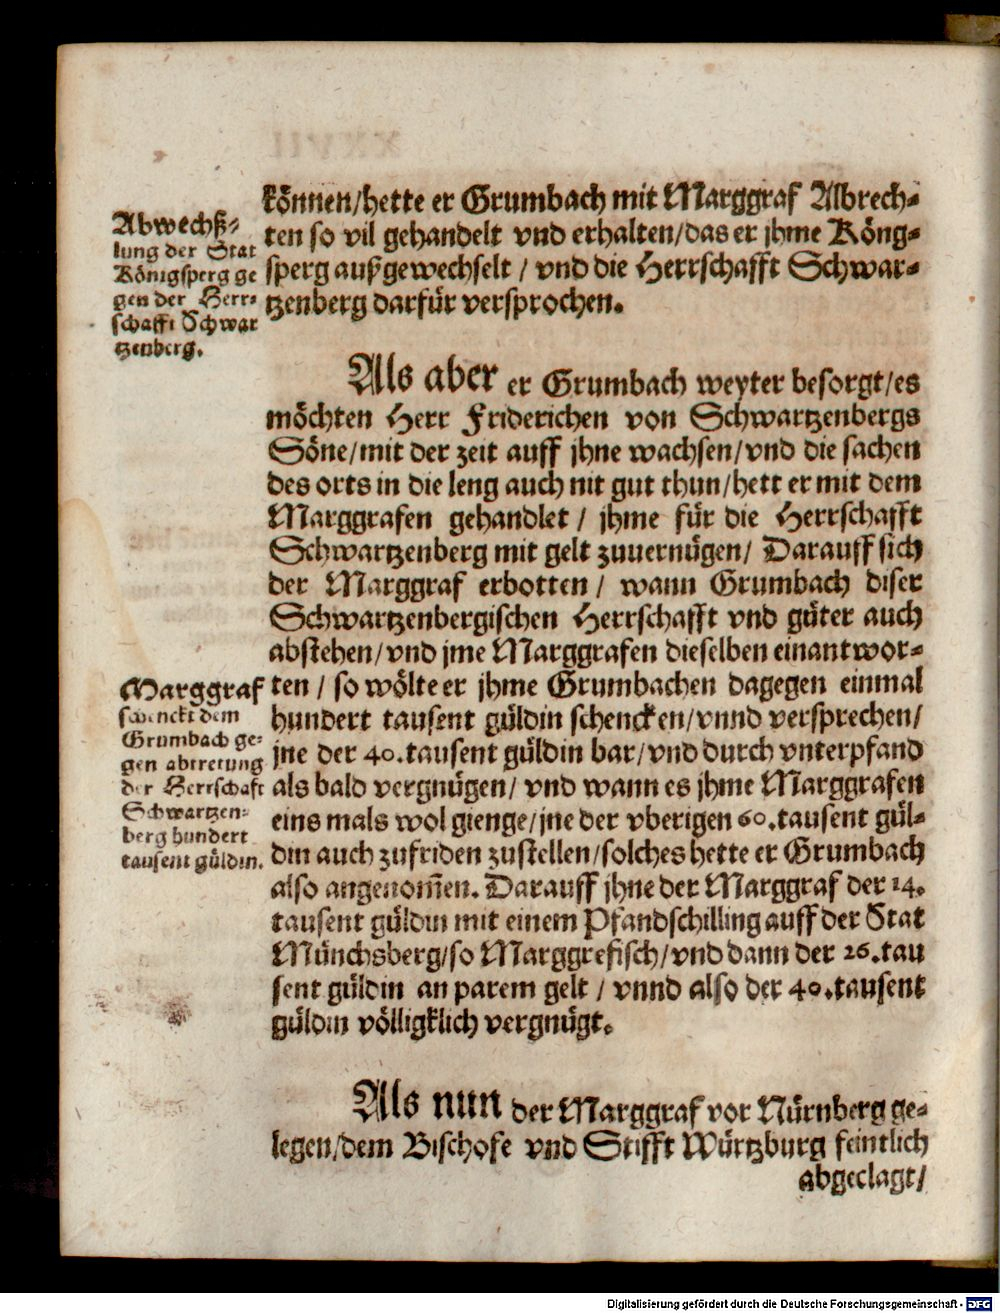 können/hette er Grumbach mit Marggraf Albrech-
ten so vil gehandelt vnd erhalten/das er jhme Köng-
sperg außgewechselt / vnd die Herrschafft Schwar-
tzenberg darfür versprochen.
Abwechß-
lung der Stat
Königsperg ge
gen der Herr-
schafft Schwar
tzenberg.
Als aber er Grumbach weyter besorgt/es
möchten Herr Friderichen von Schwartzenbergs
Söne/mit der zeit auff jhne wachsen/vnd die sachen
des orts in die leng auch nit gut thun/hett er mit dem
Marggrafen gehandlet / jhme für die Herrschafft
Schwartzenberg mit gelt zuuernügen/ Darauff sich
der Marggraf erbotten / wann Grumbach diser
Schwartzenbergischen Herrschafft vnd güter auch
abstehen/vnd jme Marggrafen dieselben einantwor-
ten / so wölte er jhme Grumbachen dagegen einmal
hundert tausent güldin schencken/vnnd versprechen/
jne der 40.tausent güldin bar/vnd durch vnterpfand
als bald vergnügen/ vnd wann es jhme Marggrafen
eins mals wol gienge/jne der vberigen 60.tausent gül-
din auch zufriden zustellen/solches hette er Grumbach
also angenom̃en. Darauff jhne der Marggraf der 14.
tausent güldin mit einem Pfandschilling auff der Stat
Münchsberg/so Marggrefisch/vnd dann der 26.tau
sent güldin an parem gelt / vnnd also der 40.tausent
güldin völligklich vergnügt.
Marggraf
schenckt dem
Grumbach ge-
gen abtretung
der Herrschaft
Schwartzen-
berg hundert
tausent güldin.
Als nun der Marggraf vor Nürnberg ge-
legen/dem Bischofe vnd Stifft Würtzburg feintlich
abgeclagt/
Digitalisierung gefördert durch die Deutsche Forschungsgemeinschaft - DFG